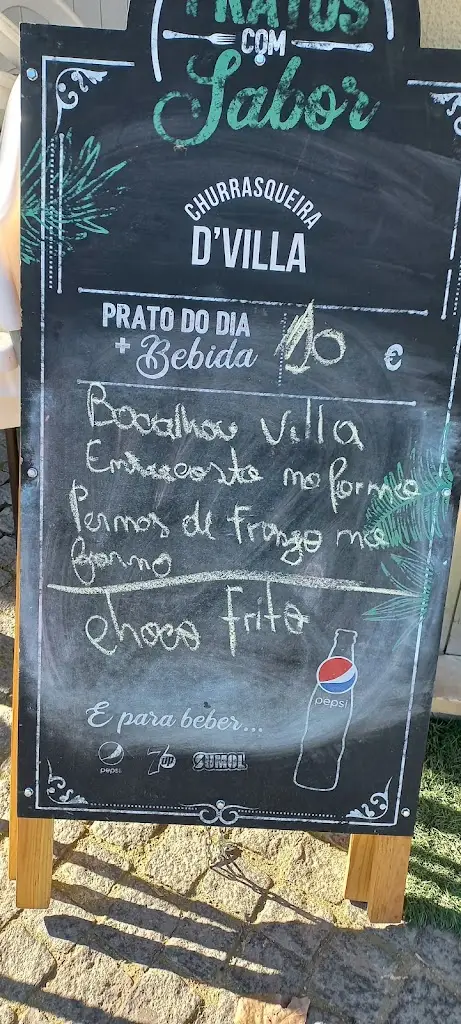 PRATOS
COM
Sabor
CHURRASQUEIRA
D'VILLA
PRATO DO DIA
+ Bebida
10 €
Bacalhau Villa
Entrecosto no forno
Pernas de frango no
forno
choco frito
pepsi
E para beber...
pepsi
7up
SUMOL